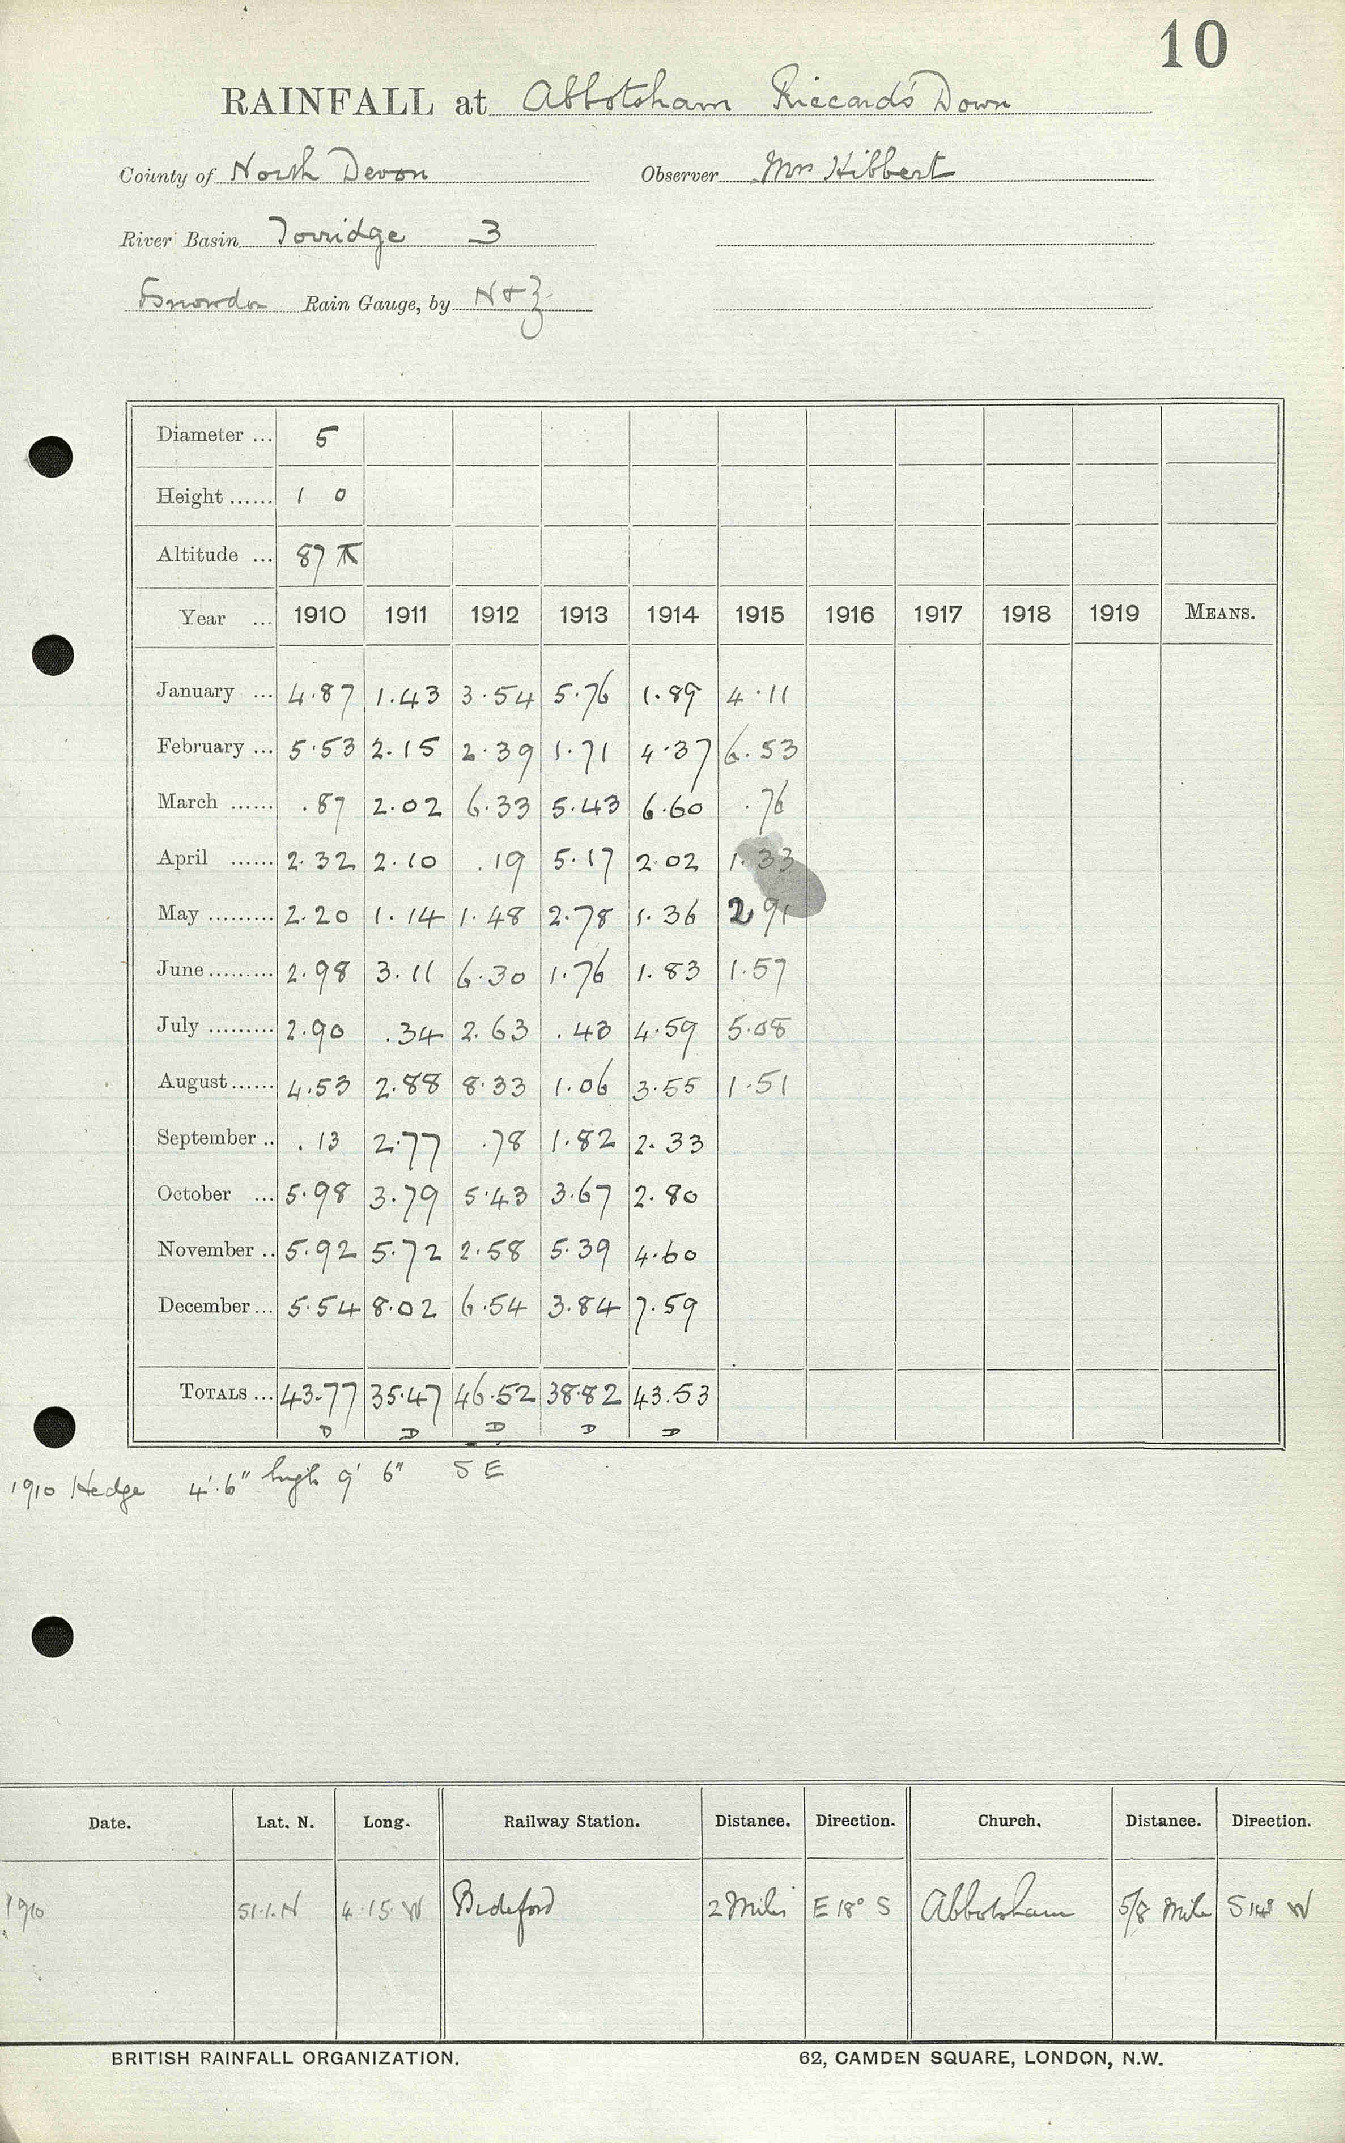 10
RAINFALL at Abbotsham Riccard's Down
County of North Devon Observer Mrs Hibbert
River Basin Torridge 3
Snowdon Rain Gauge, by N & Z
Diameter ... 5
Height ...... 1 0
Altitude ... 87
Year ... 1910 1911 1912 1913 1914 1915 1916 1917 1918 1919 MEANS.
January ... 4.87 1.43 3.54 5.76 1.89 4.11
February ... 5.53 2.15 2.39 1.71 4.37 6.53
March ...... .87 2.02 6.33 5.43 6.60 .76
April ...... 2.32 2.10 .19 5.17 2.02 1.33
May ......... 2.20 1.14 1.48 2.78 1.36 2 91
June ......... 2.98 3.11 6.30 1.76 1.83 1.57
July ......... 2.90 .34 2.63 .43 4.59 5.08
August ...... 4.53 2.88 8.33 1.06 3.55 1.51
September .. .13 2.77 .78 1.82 2.33
October ... 5.98 3.79 5.43 3.67 2.80
November .. 5.92 5.72 2.58 5.39 4.60
December ... 5.54 8.02 6.54 3.84 7.59
TOTALS ... 43.77 35.47 46.52 38.82 43.53
D D D D D
1910 Hedge 4'.6" high 9' 6" S E
Date. Lat. N. Long. Railway Station. Distance. Direction. Church. Distance. Direction.
1910 51.1.N 4.15 W Bideford 2 Miles E 18° S Abbotsham 5/8 Mile S W
BRITISH RAINFALL ORGANIZATION. 62, CAMDEN SQUARE, LONDON, N.W.